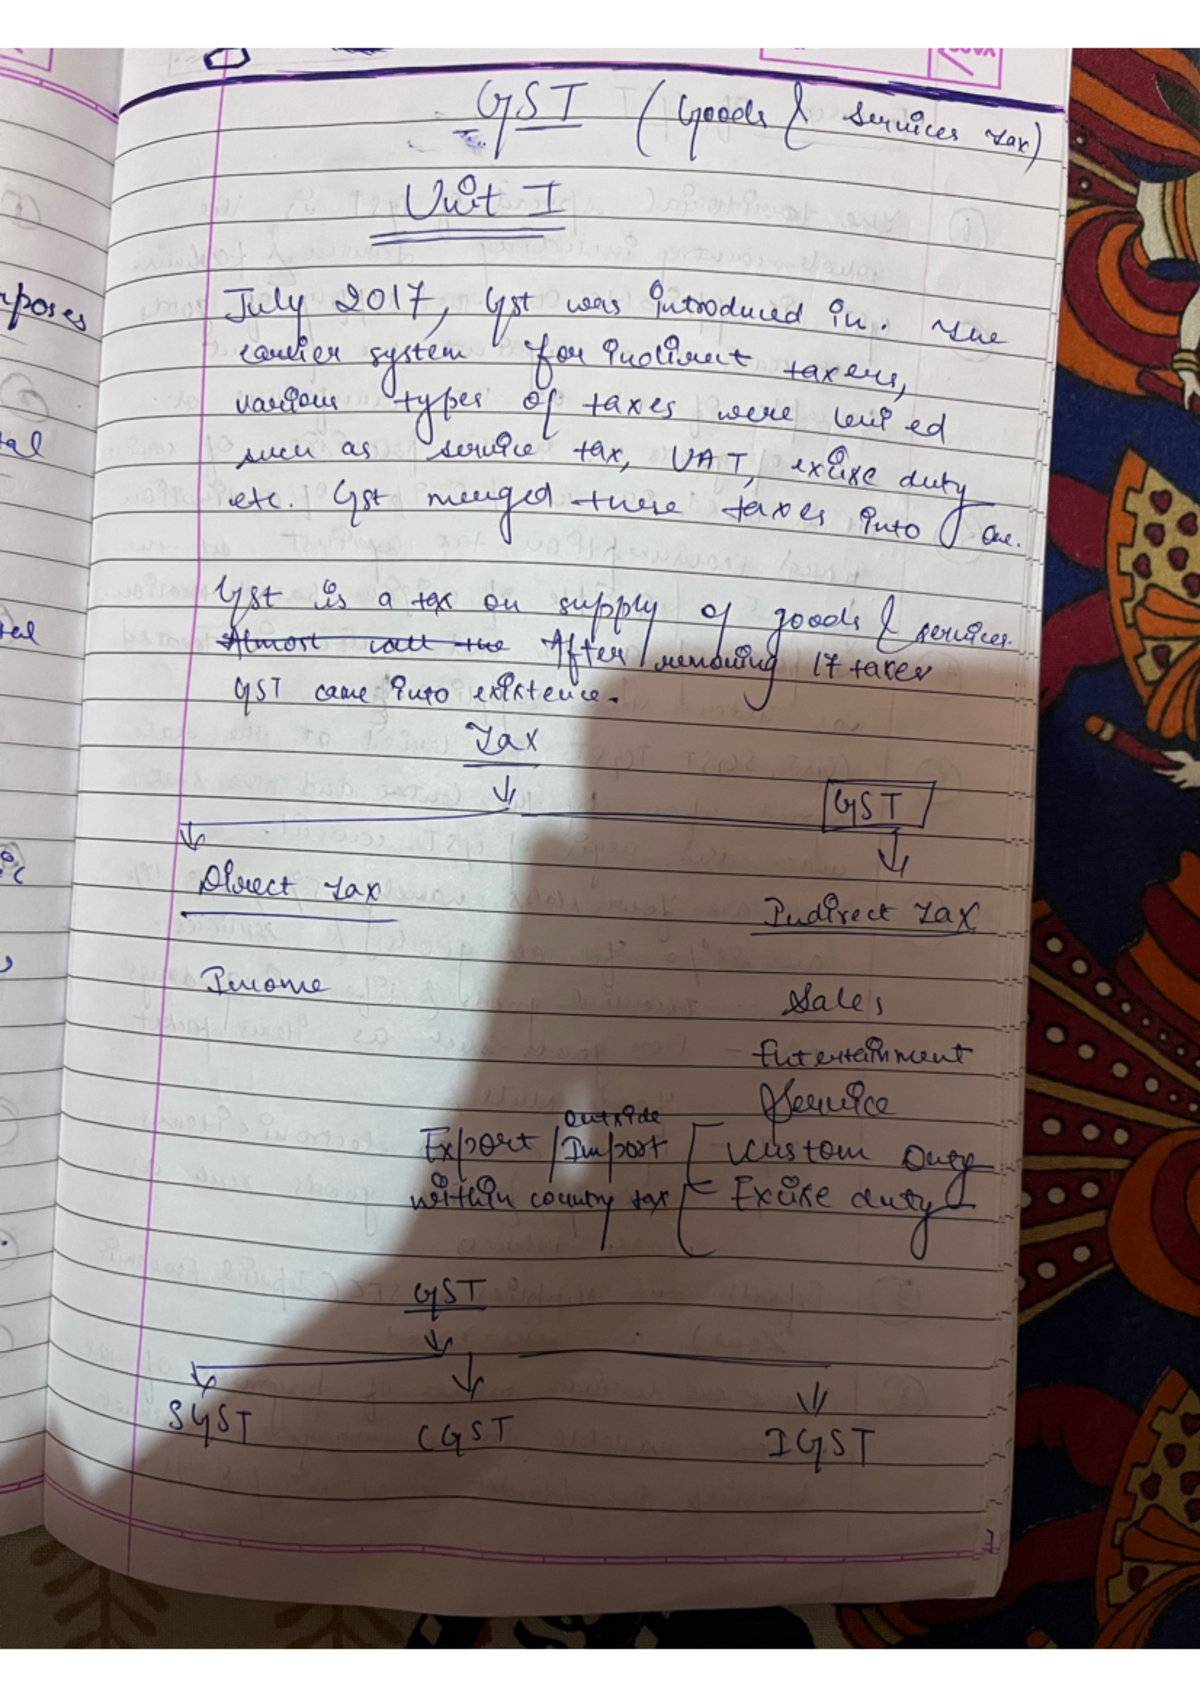 GST (Goods & Services Tax)
Unit I
July 2017, Gst was introduced in. The
earlier system for indirect taxers,
various types of taxes were levied
such as service tax, VAT, excise duty
etc. Gst merged these taxes into one.
Gst is a tax on supply of goods & services.
Almost all the After removing 17 taxes
GST came into existence.
Tax
GST
Direct Tax
Indirect Tax
Income
Sales
Entertainment
Service
outside
Export / Import [ Custom Duty
within country tax [ Excise duty
GST
SGST CGST IGST
rposes
tal